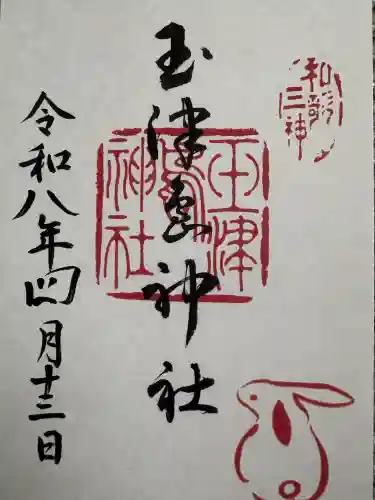 和歌三神
玉津島神社
玉津島神社
令和八年四月十三日